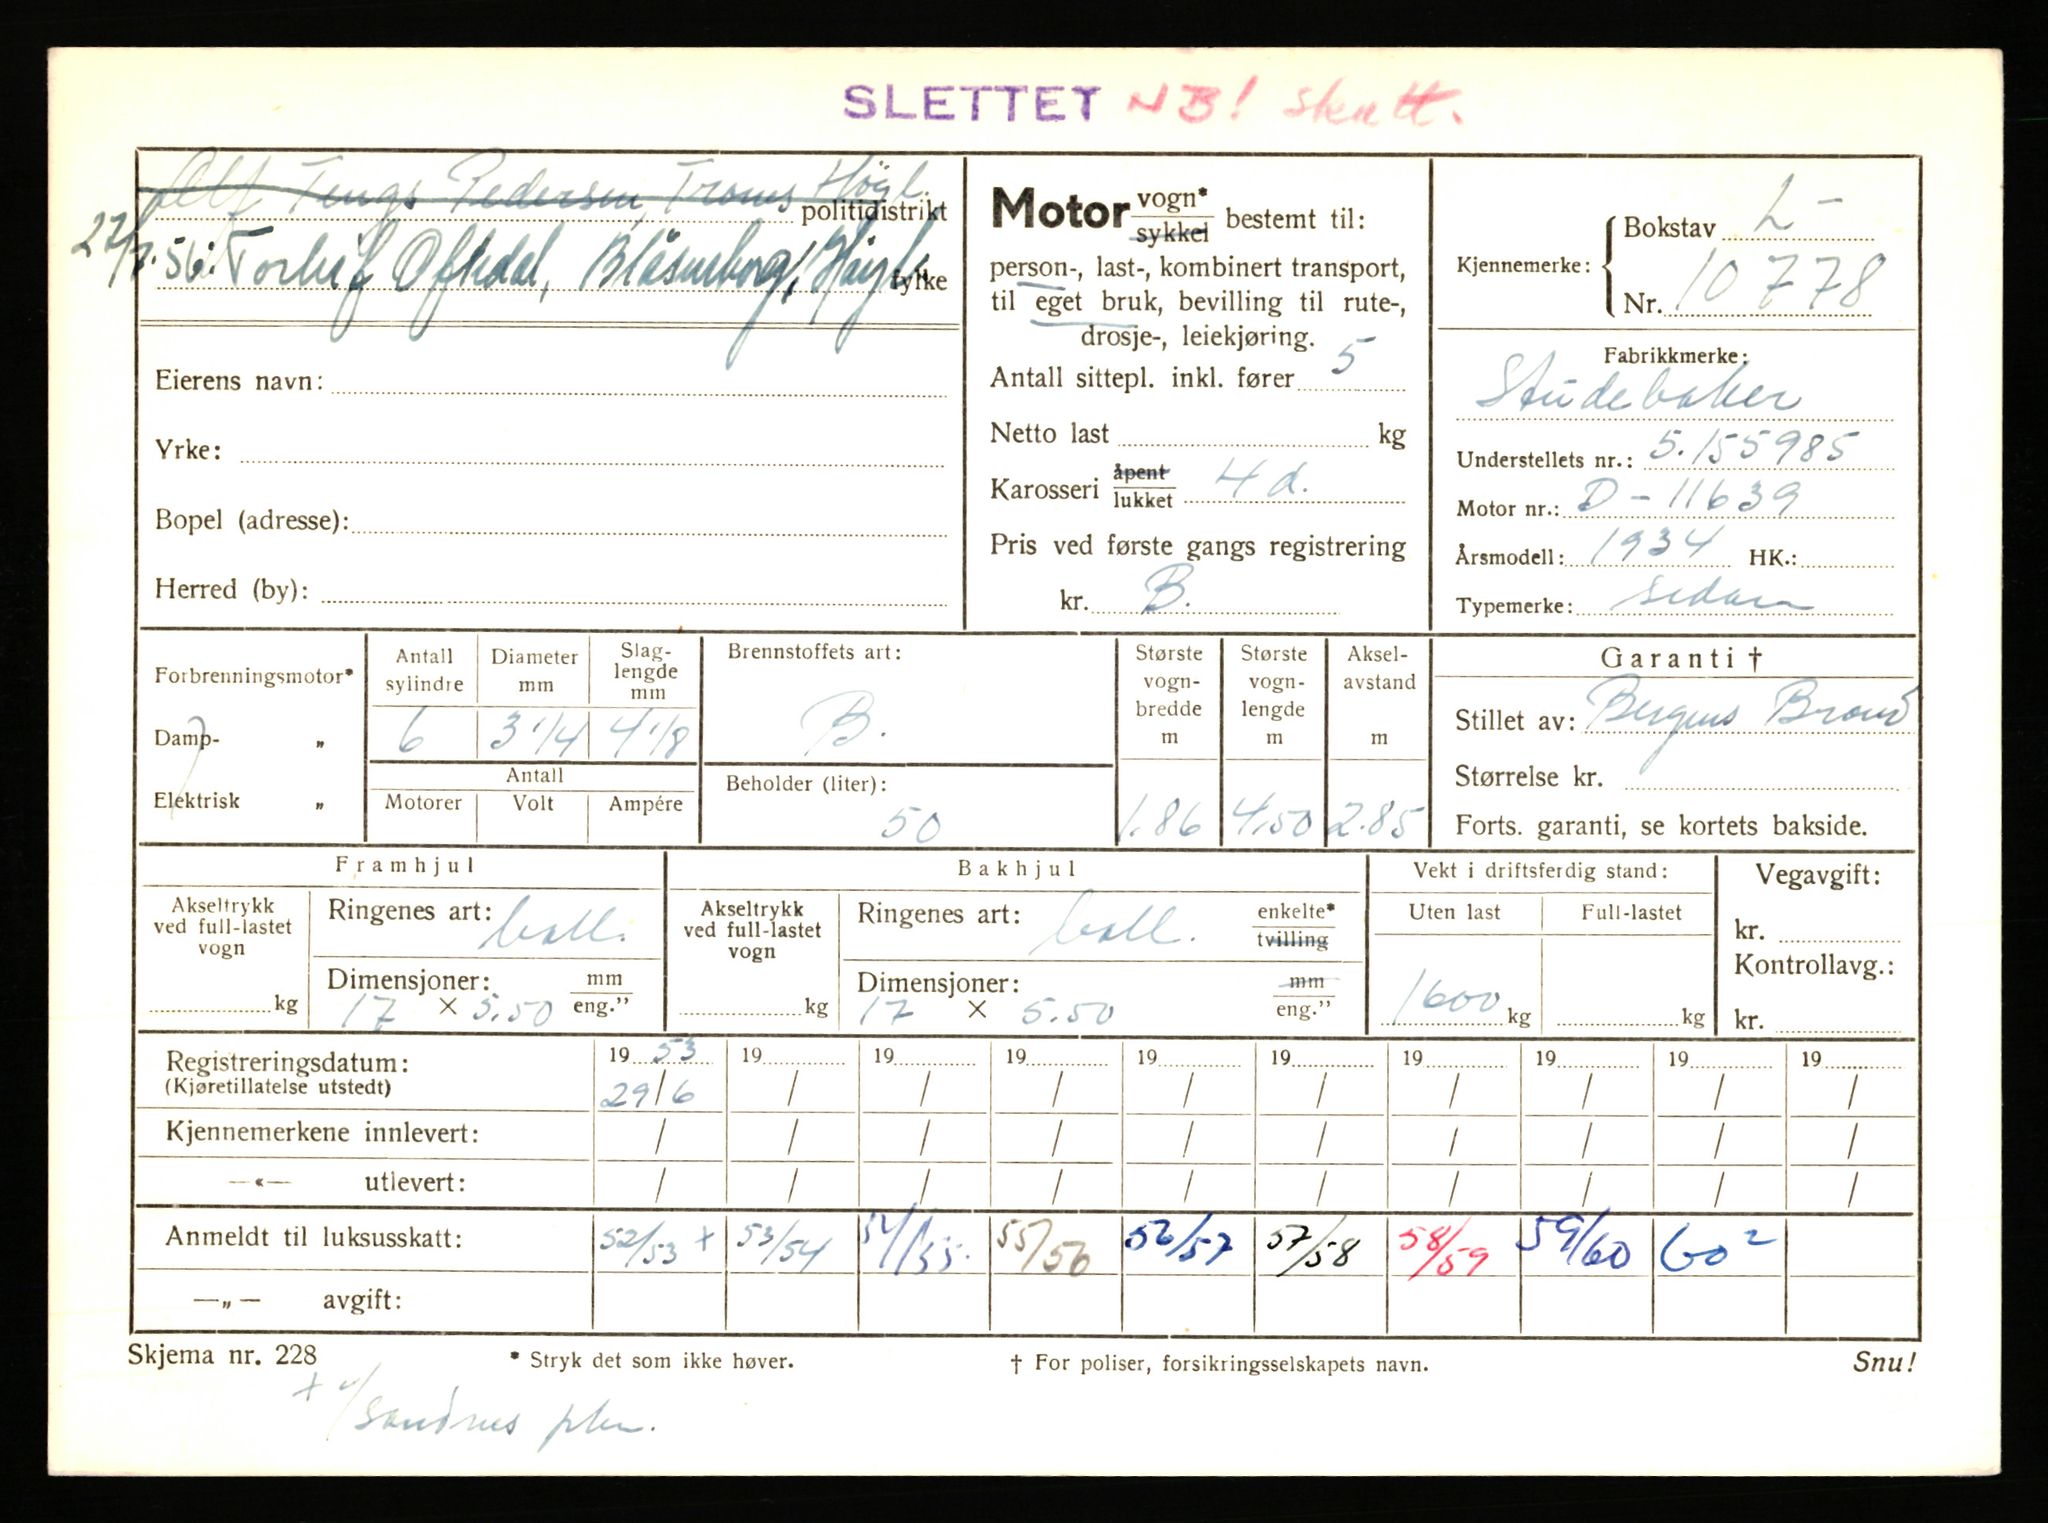 SLETTET NB! skatt.
Alf Tengs Pedersen, Trones Høyl.
politidistrikt
22/7.56: Torleif Oftedal, Blåsenborg, Høyl.
fylke
Eierens navn:
Yrke:
Bopel (adresse):
Herred (by):
Motor vogn* / sykkel bestemt til:
person-, last-, kombinert transport,
til eget bruk, bevilling til rute-,
drosje-, leiekjøring.
Antall sittepl. inkl. fører 5
Netto last kg
Karosseri åpent / lukket 4 d.
Pris ved første gangs registrering
kr. B.
Kjennemerke: Bokstav L-
Nr. 10778
Fabrikkmerke:
Studebaker
Understellets nr.: 5.155985
Motor nr.: D-11639
Årsmodell: 1934 HK.:
Typemerke: sedan
Forbrenningsmotor*
Damp- „
Elektrisk „
Antall sylindre 6
Diameter mm 3 1/4
Slag-lengde mm 4 1/8
Antall
Motorer Volt Ampére
Brennstoffets art:
B.
Beholder (liter):
50
Største vogn-bredde m 1.86
Største vogn-lengde m 4.50
Aksel-avstand m 2.85
Garanti †
Stillet av: Bergens Brand
Størrelse kr.
Forts. garanti, se kortets bakside.
Framhjul
Akseltrykk ved full-lastet vogn kg
Ringenes art: ball.
Dimensjoner: mm / eng."
17 × 5.50
Bakhjul
Akseltrykk ved full-lastet vogn kg
Ringenes art: ball. enkelte* / tvilling
Dimensjoner: mm / eng."
17 × 5.50
Vekt i driftsferdig stand:
Uten last Full-lastet
1600 kg kg
Vegavgift:
kr.
Kontrollavg.:
kr.
Registreringsdatum: 19 53 19 19 19 19 19 19 19 19 19
(Kjøretillatelse utstedt) 29/6 / / / / / / / / /
Kjennemerkene innlevert: / / / / / / / / / /
—«— utlevert: / / / / / / / / / /
Anmeldt til luksusskatt: 52/53 + 53/54 54/55. 55/56 56/57 57/58 58/59 59/60 60²
—„— avgift:
Skjema nr. 228 * Stryk det som ikke høver. † For poliser, forsikringsselskapets navn. Snu!
+ v/Sandnes pkm.